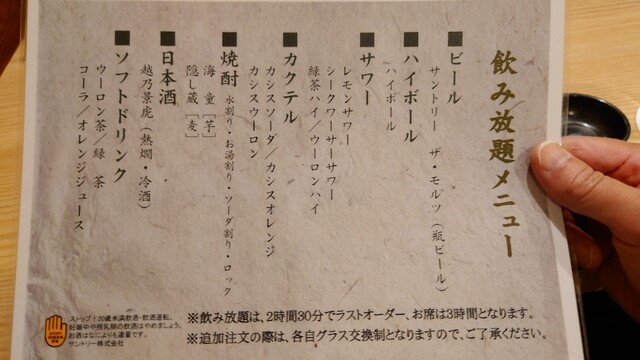 飲み放題メニュー
■ビール
サントリー ザ・モルツ（瓶ビール）
■ハイボール
ハイボール
■サワー
レモンサワー
シークワーサーサワー
緑茶ハイ／ウーロンハイ
■カクテル
カシスソーダ／カシスオレンジ
カシスウーロン
■焼酎 水割り・お湯割り・ソーダ割り・ロック
海 童［芋］
隠し蔵［麦］
■日本酒
越乃景虎（熱燗・冷酒）
■ソフトドリンク
ウーロン茶／緑 茶
コーラ／オレンジジュース
※飲み放題は、2時間30分でラストオーダー、お席は3時間となります。
※追加注文の際は、各自グラス交換制となりますので、ご了承ください。
ストップ！20歳未満飲酒・飲酒運転。
妊娠中や授乳期の飲酒はやめましょう。
お酒はなによりも適量です。
サントリー株式会社